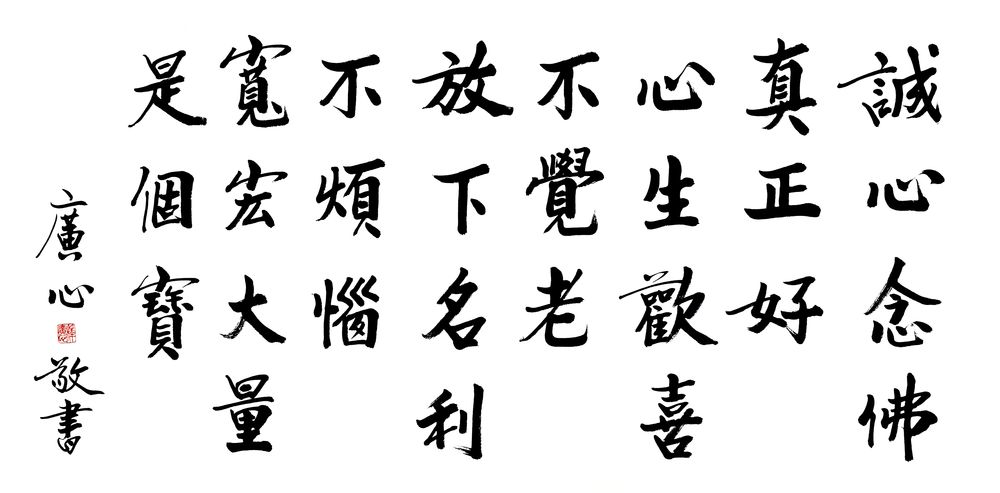 誠心念佛
真正好
心生歡喜
不覺老
放下名利
不煩惱
寬宏大量
是個寶
廣心敬書